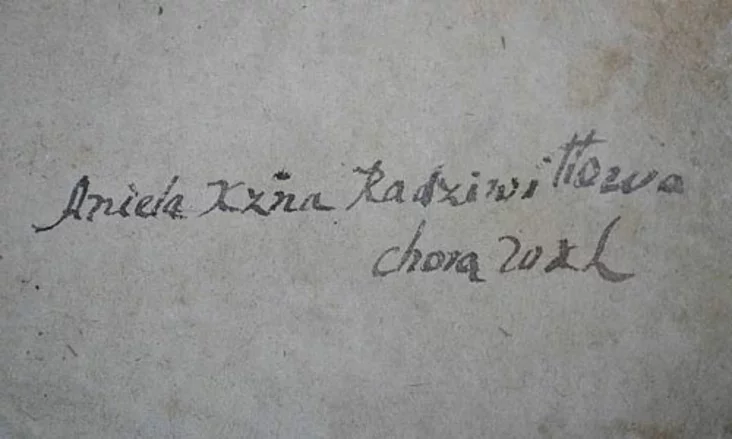 Aniela Xżna Radziwiłłowa
chorą WXL